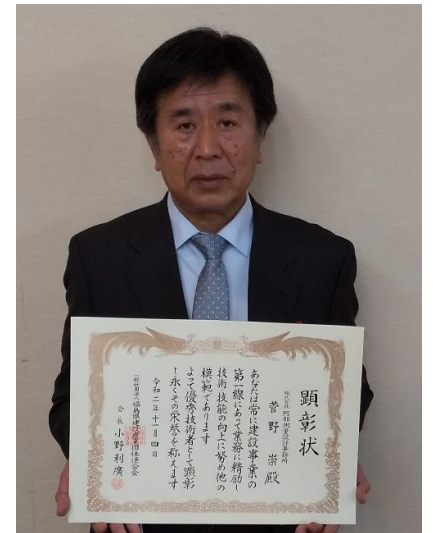 顕彰状
株式会社 阿部測量設計事務所
菅野 崇 殿
あなたは常に建設事業の
第一線にあって業務に精励し
技術・技能の向上に努め他の
模範であります
よって優秀技術者として顕彰
し永くその栄誉を称えます
令和二年十一月四日
一般社団法人 福島県建設産業団体連合会
会長 小野利廣